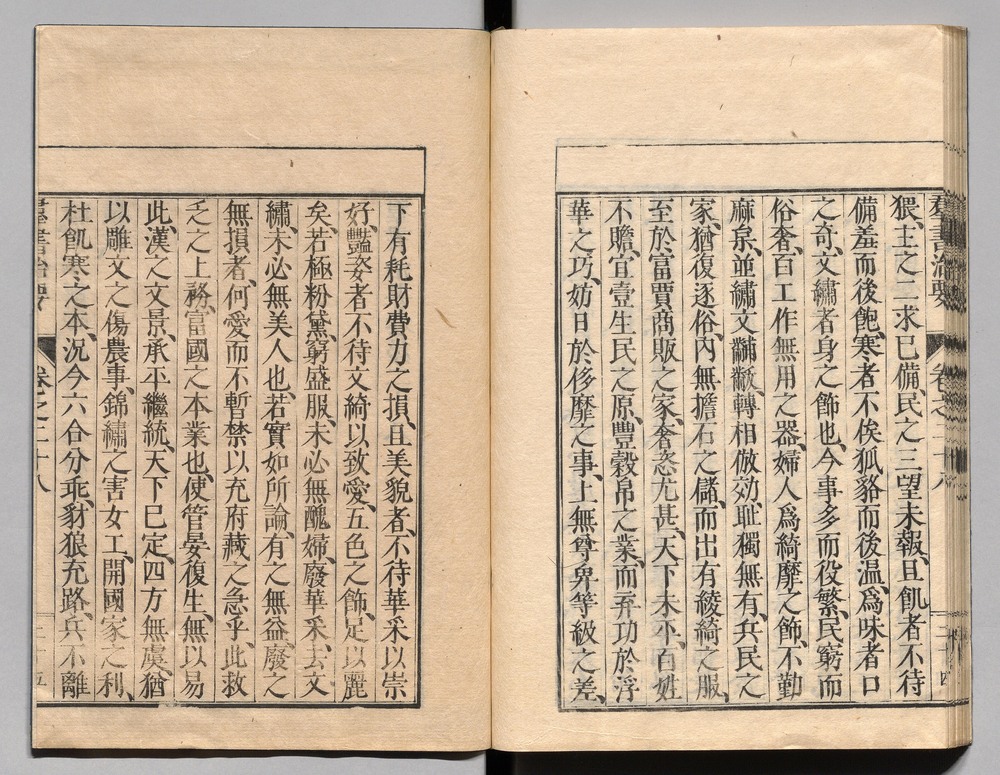 羣書治要 卷之二十八
猥、主之二求已備民之三望未報、且飢者不待
備羞而後飽、寒者不俟狐貉而後温、爲味者口
之奇、文繡者身之飾也、今事多而役繁、民窮而
俗奢、百工作無用之器、婦人爲綺靡之飾、不勤
麻枲、並繡文黼黻、轉相倣効、耻獨無有、兵民之
家、猶復逐俗、内無擔石之儲、而出有綾綺之服、
至於富賈商販之家、奢恣尤甚、天下未平、百姓
不贍、宜壹生民之原、豐穀帛之業、而弃功於浮
華之巧、妨日於侈靡之事、上無尊卑等級之差、
下有耗財費力之損、且美貌者、不待華采以崇
好、豔姿者不待文綺以致愛、五色之飾、足以麗
矣、若極粉黛、窮盛服、未必無醜婦、廢華采、去文
繡、未必無美人也、若實如所論、有之無益、廢之
無損者、何愛而不暫禁以充府藏之急乎、此救
乏之上務、富國之本業也、使管晏復生、無以易
此、漢之文景、承平繼統、天下已定、四方無虞、猶
以雕文之傷農事、錦繡之害女工、開國家之利、
杜飢寒之本、況今六合分乖、豺狼充路、兵不離
羣書治要 卷之二十八 二十五